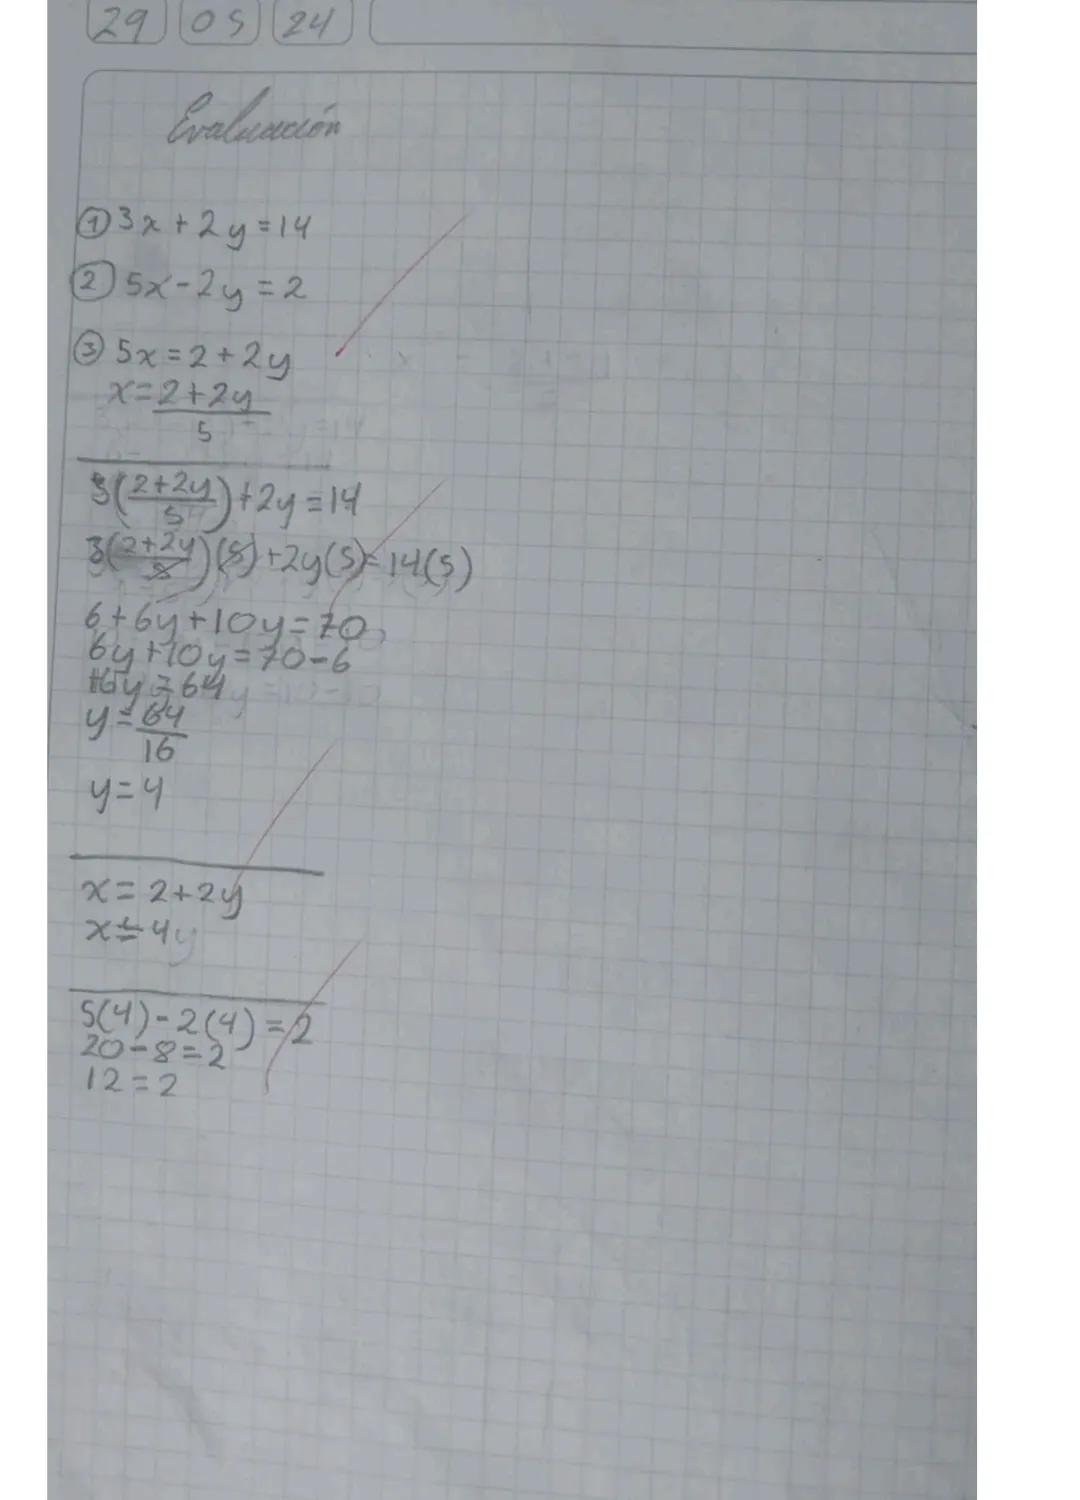 29 05 24
Evaluación
① 3x + 2y = 14
② 5x - 2y = 2
③ 5x = 2 + 2y
x = 2 + 2y
5
3(2+2y/5) + 2y = 14
3(2+2y/5)(5) + 2y(5) = 14(5)
6 + 6y + 10y = 70
6y + 10y = 70 - 6
16y = 64
y = 64
16
y = 4
x = 2 + 2y
x = 4y
5(4) - 2(4) = 2
20 - 8 = 2
12 = 2